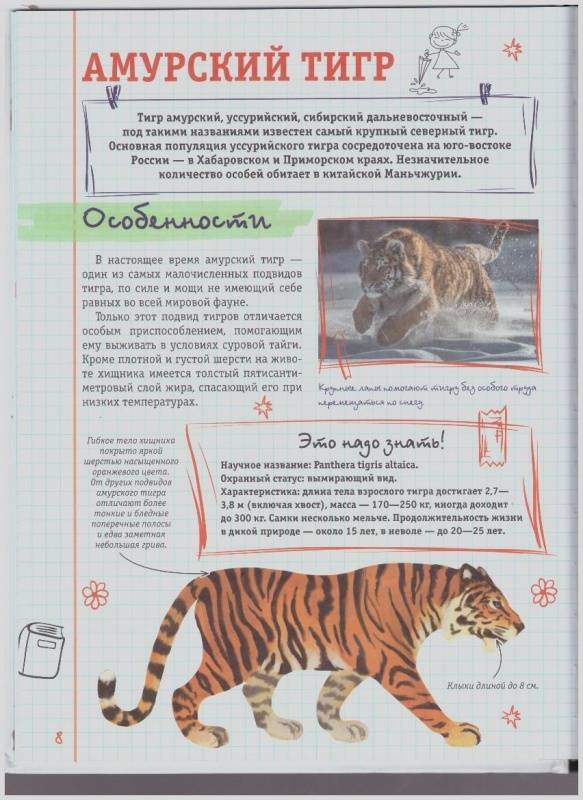 АМУРСКИЙ ТИГР
Тигр амурский, уссурийский, сибирский дальневосточный —
под такими названиями известен самый крупный северный тигр.
Основная популяция уссурийского тигра сосредоточена на юго-востоке
России — в Хабаровском и Приморском краях. Незначительное
количество особей обитает в китайской Маньчжурии.
Особенности
В настоящее время амурский тигр —
один из самых малочисленных подвидов
тигра, по силе и мощи не имеющий себе
равных во всей мировой фауне.
Только этот подвид тигров отличается
особым приспособлением, помогающим
ему выживать в условиях суровой тайги.
Кроме плотной и густой шерсти на живо-
те хищника имеется толстый пятисанти-
метровый слой жира, спасающий его при
низких температурах.
Крупные лапы помогают тигру без особого труда
перемещаться по снегу.
Это надо знать!
Научное название: Panthera tigris altaica.
Охранный статус: вымирающий вид.
Характеристика: длина тела взрослого тигра достигает 2,7—
3,8 м (включая хвост), масса — 170—250 кг, иногда доходит
до 300 кг. Самки несколько мельче. Продолжительность жизни
в дикой природе — около 15 лет, в неволе — до 20—25 лет.
Гибкое тело хищника
покрыто яркой
шерстью насыщенного
оранжевого цвета.
От других подвидов
амурского тигра
отличают более
тонкие и бледные
поперечные полосы
и едва заметная
небольшая грива.
Клыки длиной до 8 см.
8